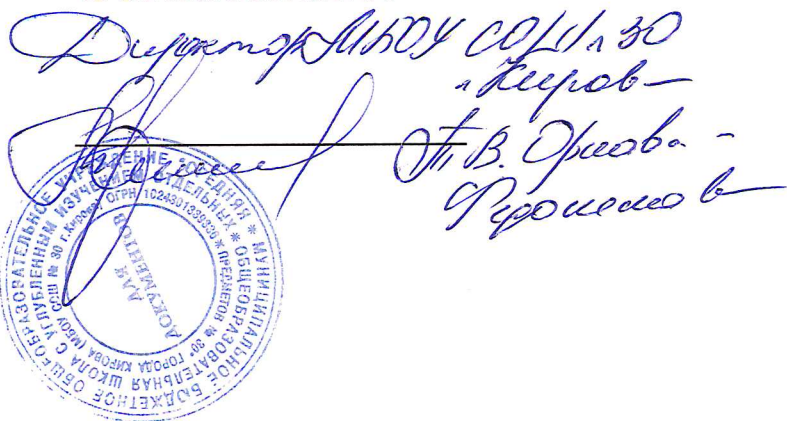 Директор МБОУ СОШ 30
г. Киров
Т.В. Орлова-
МУНИЦИПАЛЬНОЕ БЮДЖЕТНОЕ ОБЩЕОБРАЗОВАТЕЛЬНОЕ УЧРЕЖДЕНИЕ "СРЕДНЯЯ
ОБЩЕОБРАЗОВАТЕЛЬНАЯ ШКОЛА С УГЛУБЛЕННЫМ ИЗУЧЕНИЕМ ОТДЕЛЬНЫХ
ПРЕДМЕТОВ № 30" ГОРОДА КИРОВА (МБОУ СОШ № 30 г.Кирова) ОГРН
ДЛЯ
ДОКУМЕНТОВ